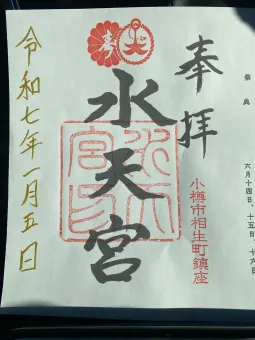 奉拝
水天宮
小樽市相生町鎮座
令和七年一月五日
六月十四日、十五日、十六日